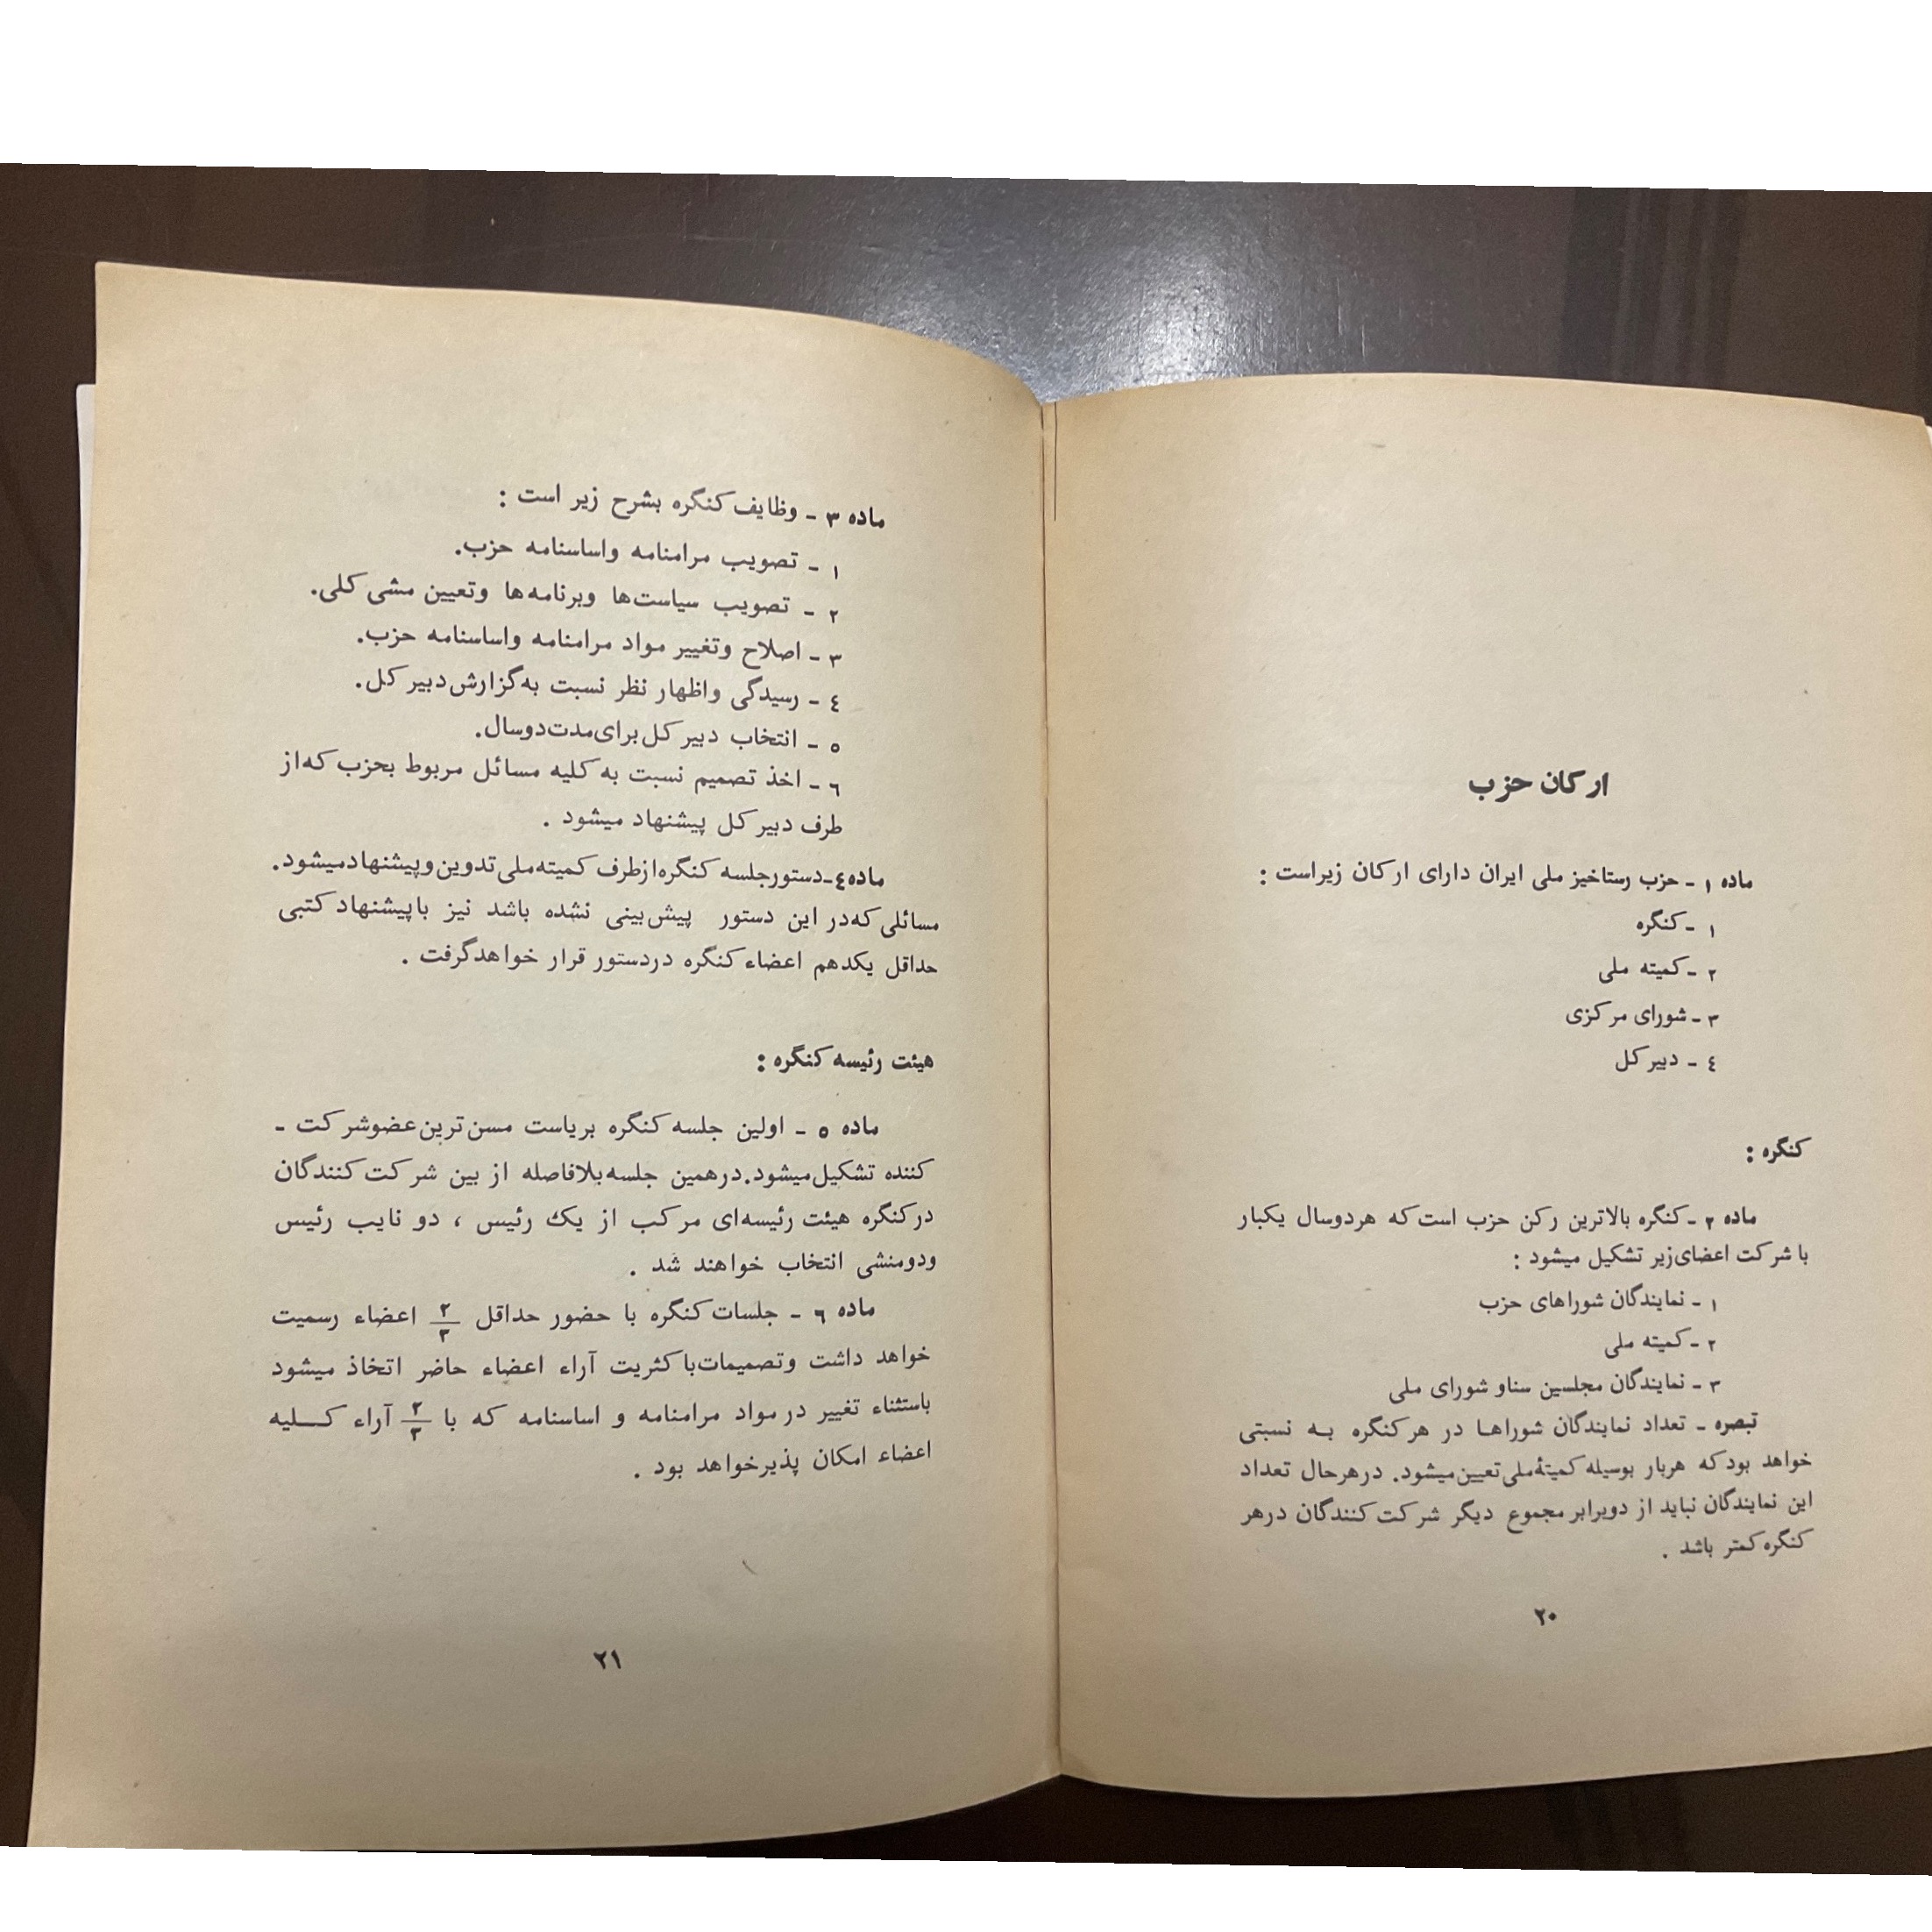 ارکان حزب
ماده ۱ - حزب رستاخیز ملی ایران دارای ارکان زیراست :
۱ - کنگره
۲ - کمیته ملی
۳ - شورای مرکزی
٤ - دبیرکل
کنگره :
ماده ۲ - کنگره بالاترین رکن حزب است که هردوسال یکبار
با شرکت اعضای زیر تشکیل میشود :
۱ - نمایندگان شوراهای حزب
۲ - کمیته ملی
۳ - نمایندگان مجلسین سناو شورای ملی
تبصره - تعداد نمایندگان شوراها در هرکنگره به نسبتی
خواهد بود که هربار بوسیله کمیتهٔ ملی تعیین میشود. درهرحال تعداد
این نمایندگان نباید از دوبرابر مجموع دیگر شرکت کنندگان درهر
کنگره کمتر باشد .
۲۰
ماده ۳ - وظایف کنگره بشرح زیر است :
۱ - تصویب مرامنامه واساسنامه حزب.
۲ - تصویب سیاست‌ها وبرنامه‌ها وتعیین مشی کلی.
۳ - اصلاح وتغییر مواد مرامنامه واساسنامه حزب.
٤ - رسیدگی واظهار نظر نسبت به گزارش دبیرکل.
٥ - انتخاب دبیرکل برای مدت دوسال.
٦ - اخذ تصمیم نسبت به کلیه مسائل مربوط بحزب که از
طرف دبیرکل پیشنهاد میشود .
ماده ٤ - دستورجلسه کنگره ازطرف کمیته ملی تدوین وپیشنهاد میشود.
مسائلی که در این دستور پیش‌بینی نشده باشد نیز با پیشنهاد کتبی
حداقل یکدهم اعضاء کنگره دردستور قرار خواهد گرفت .
هیئت رئیسه کنگره :
ماده ٥ - اولین جلسه کنگره بریاست مسن‌ترین عضو شرکت -
کننده تشکیل میشود. درهمین جلسه بلافاصله از بین شرکت کنندگان
در کنگره هیئت رئیسه‌ای مرکب از یک رئیس ، دو نایب رئیس
ودومنشی انتخاب خواهند شد .
ماده ٦ - جلسات کنگره با حضور حداقل ۲/۳ اعضاء رسمیت
خواهد داشت وتصمیمات باکثریت آراء اعضاء حاضر اتخاذ میشود
باستثناء تغییر در مواد مرامنامه و اساسنامه که با ۲/۳ آراء کلیه
اعضاء امکان پذیرخواهد بود .
۲۱